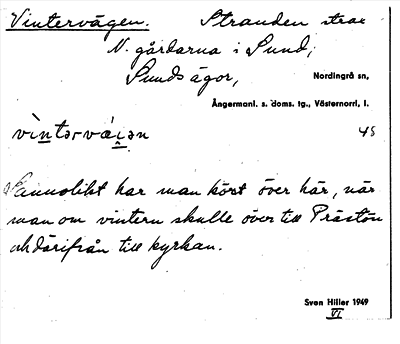 Vintervägen. Stranden strax
N. gårdarna i Sund,
Sunds ägor, Nordingrå sn,
Ångermanl. s. doms. tg., Västernorrl. l.
vìntərvä̀ıən 45
Sannolikt har man kört över här, när
man om vintern skulle över till Prästön
och därifrån till kyrkan.
Sven Hiller 1949
VI